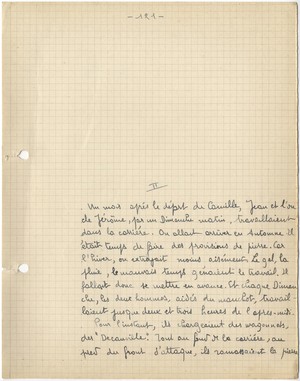 - 121 -
II
Un mois après le départ de Camille, Jean et l'on
de Jérôme, par un Dimanche matin, travaillaient
dans la carrière. On allait arriver en Automne il
était temps de faire des provisions de pierre. Car
l'hiver, on extrayait moins aisément. Le gel, la
pluie, le mauvais temps gênaient le travail. Il
fallait donc se mettre en avance. Et chaque Diman-
che, les deux hommes, aidés du manchot, travail-
laient jusque deux et trois heures de l'après-midi.
Pour l'instant, ils chargeaient des wagonnets,
des "Decauville". Tout au fond de la carrière, au
pied du front d'attaque, ils ramassaient la pierre